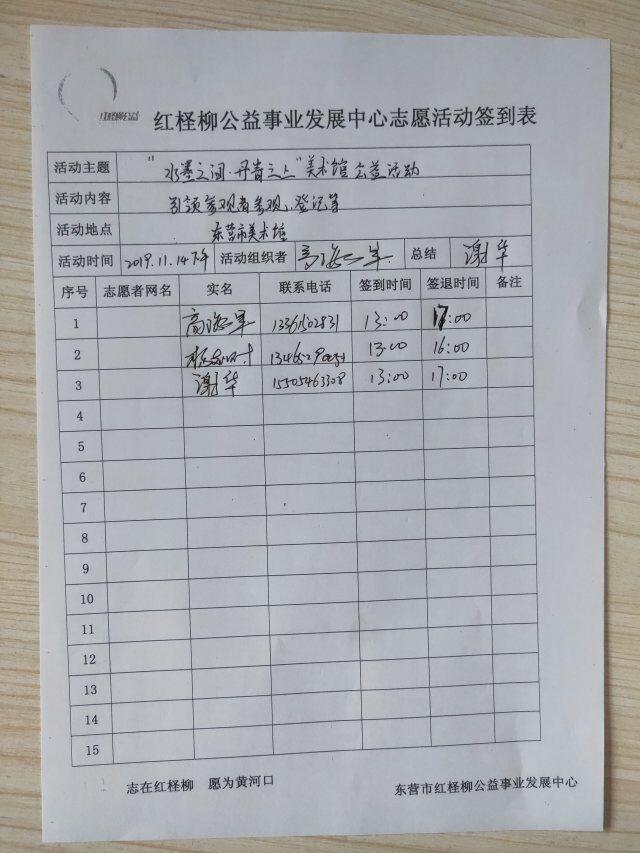 红柽柳公益事业发展中心志愿活动签到表
活动主题 "水墨之间·丹青之上"美术馆公益活动
活动内容 引领参观者参观、登记等
活动地点 东营市美术馆
活动时间 2019.11.14下午 活动组织者 高海军 总结 谢华
序号 志愿者网名 实名 联系电话 签到时间 签退时间 备注
1 高海军 13361502831 13:00 17:00
2 13:00 16:00
3 谢华 15505463308 13:00 17:00
4
5
6
7
8
9
10
11
12
13
14
15
志在红柽柳 愿为黄河口 东营市红柽柳公益事业发展中心